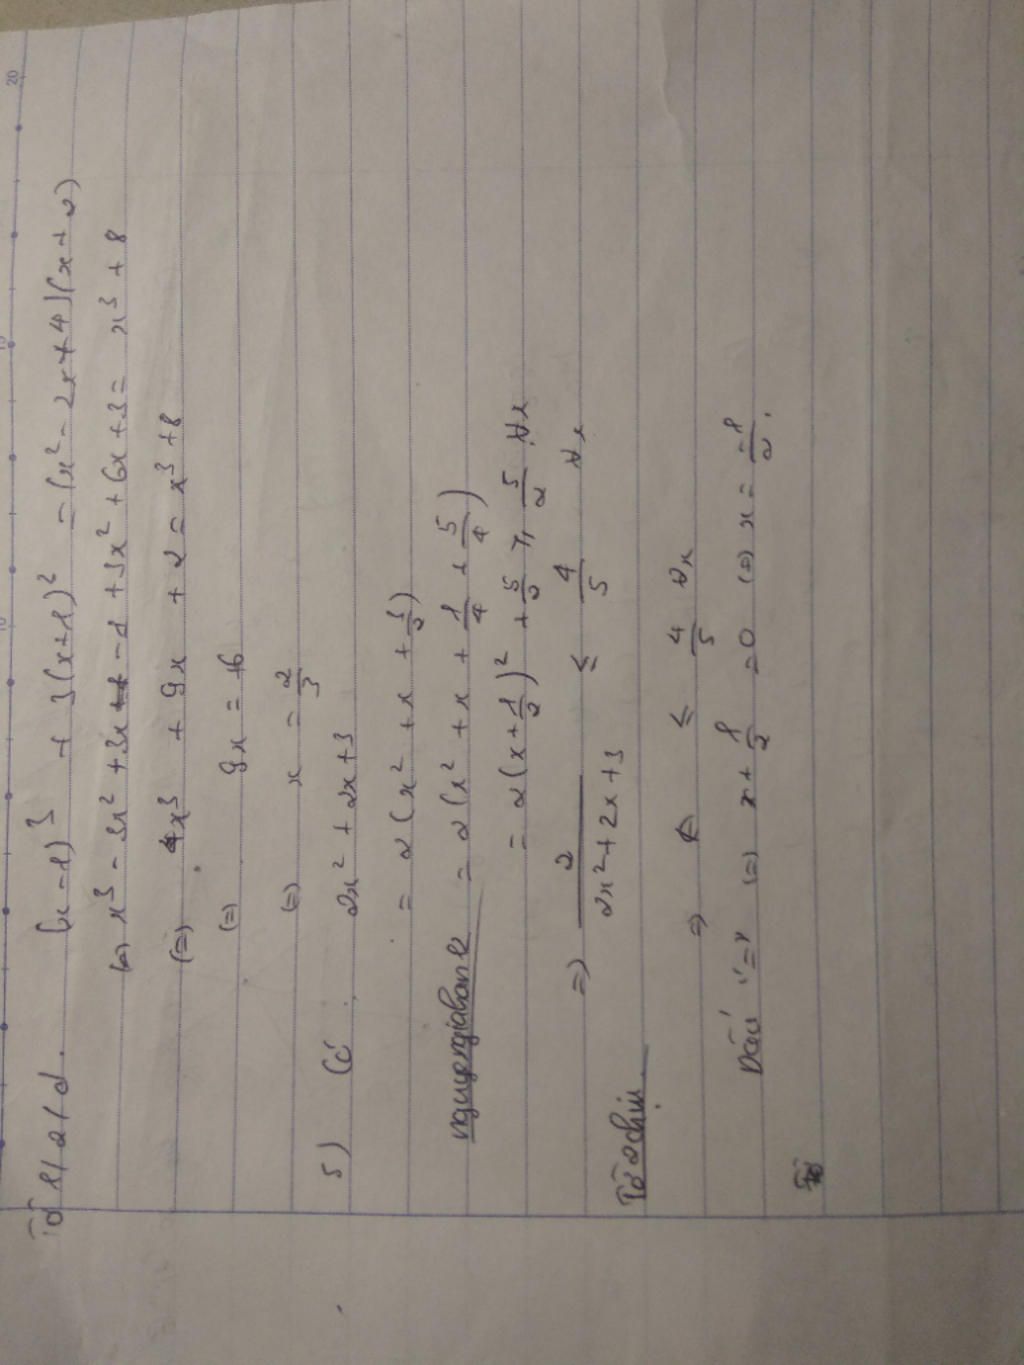 Tờ 1/2/d. (x-1)³ + 3(x+1)² = (x²-2x+4)(x+2)
(=) x³ - 3x² + 3x - 1 + 3x² + 6x + 3 = x³ + 8
(=) x³ + 9x + 2 = x³ + 8
(=) 9x = 6
(=) x = 2/3
5) Có 2x² + 2x + 3
= 2(x² + x + 3/2)
nguyengiahankk = 2(x² + x + 1/4 + 5/4)
= 2(x + 1/2)² + 5/2 ≥ 5/2 ∀x
=) 2/(2x² + 2x + 3) ≤ 4/5 ∀x
Tờ 2chiu.
=) A ≤ 4/5 ∀x
Dấu "=" (=) x + 1/2 = 0 (=) x = -1/2.